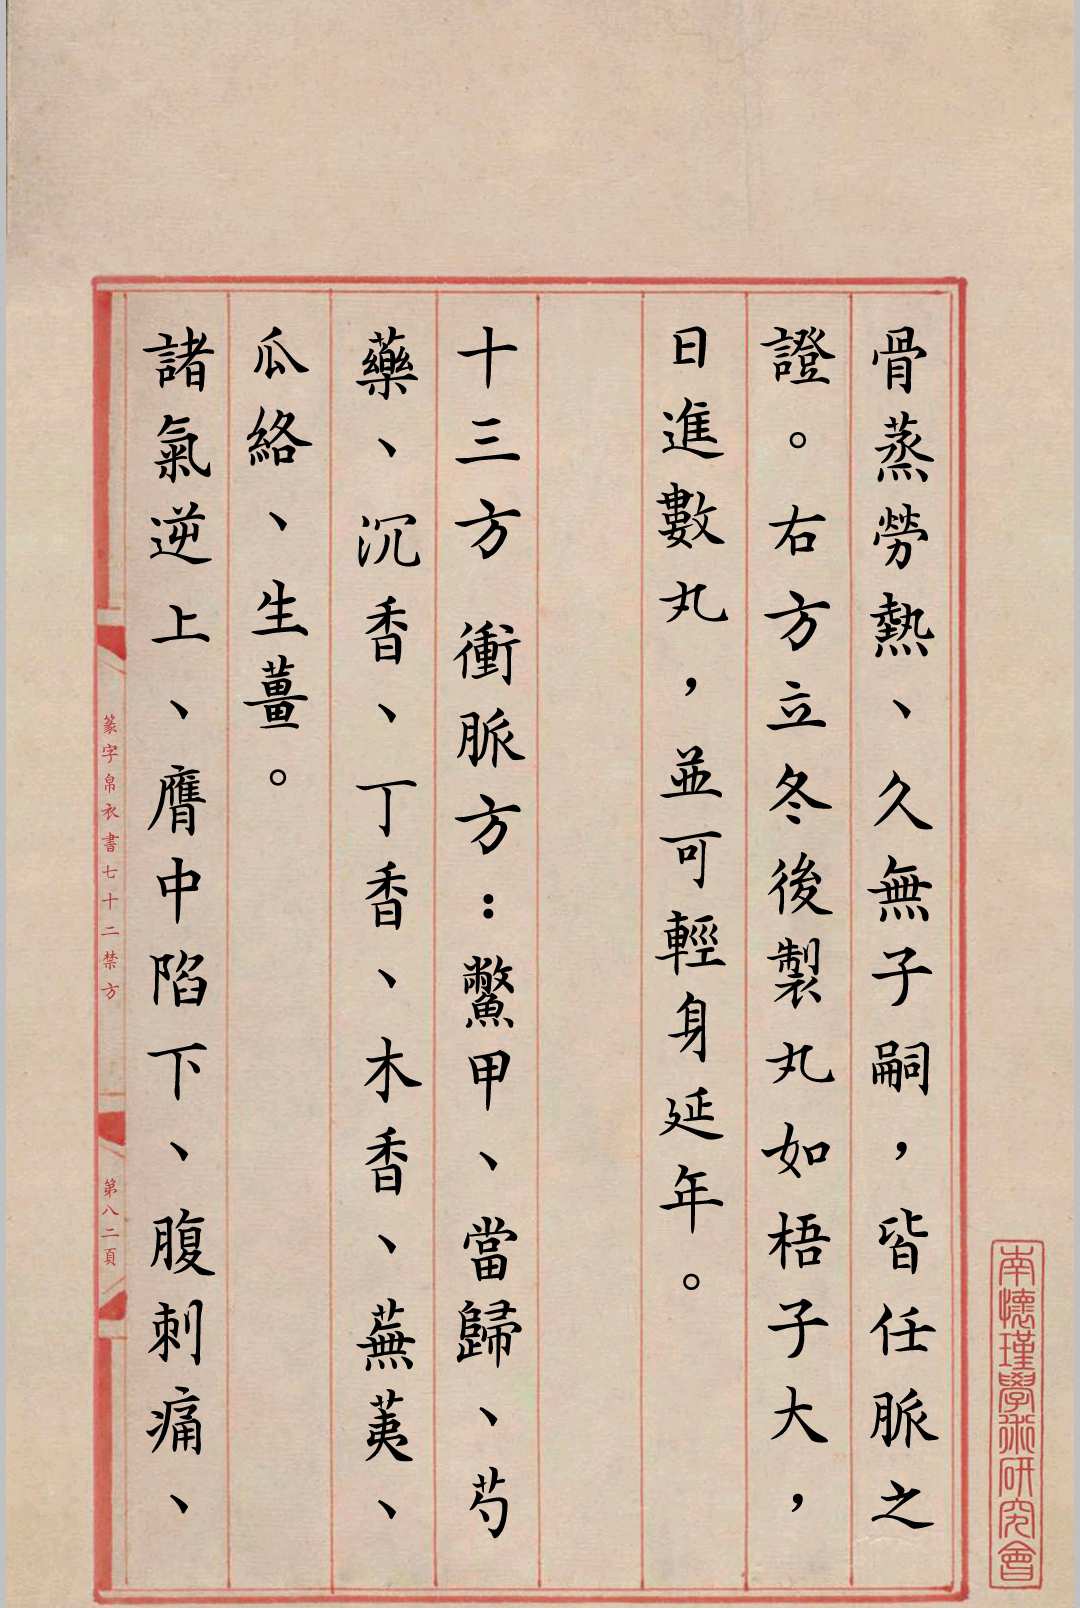 骨蒸勞熱、久無子嗣，皆任脈之
證。右方立冬後製丸如梧子大，
日進數丸，並可輕身延年。
十三方 衝脈方：鱉甲、當歸、芍
藥、沉香、丁香、木香、蕪荑、
瓜絡、生薑。
諸氣逆上、膺中陷下、腹刺痛、
篆字帛衣書七十二禁方
第八二頁
南懷瑾學術研究會